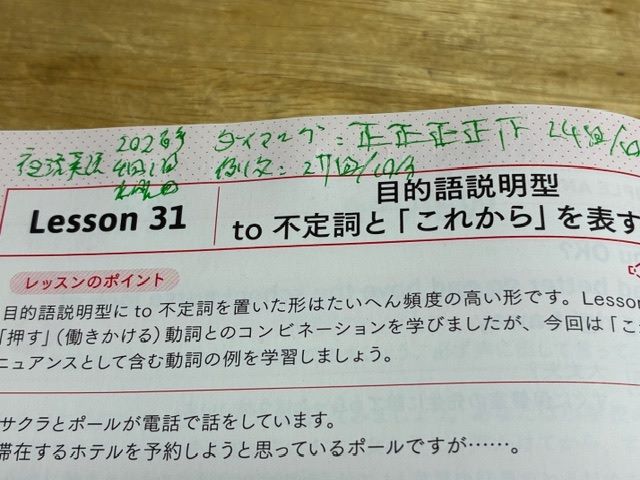 ダイアログ：正正正正下 24回/10
例文：27回/10分
Lesson 31
目的語説明型
to 不定詞と「これから」を表す
レッスンのポイント
目的語説明型に to 不定詞を置いた形はたいへん頻度の高い形です。Lesson
「押す」（働きかける）動詞とのコンビネーションを学びましたが、今回は「こ
ニュアンスとして含む動詞の例を学習しましょう。
サクラとポールが電話で話をしています。
滞在するホテルを予約しようと思っているポールですが……。